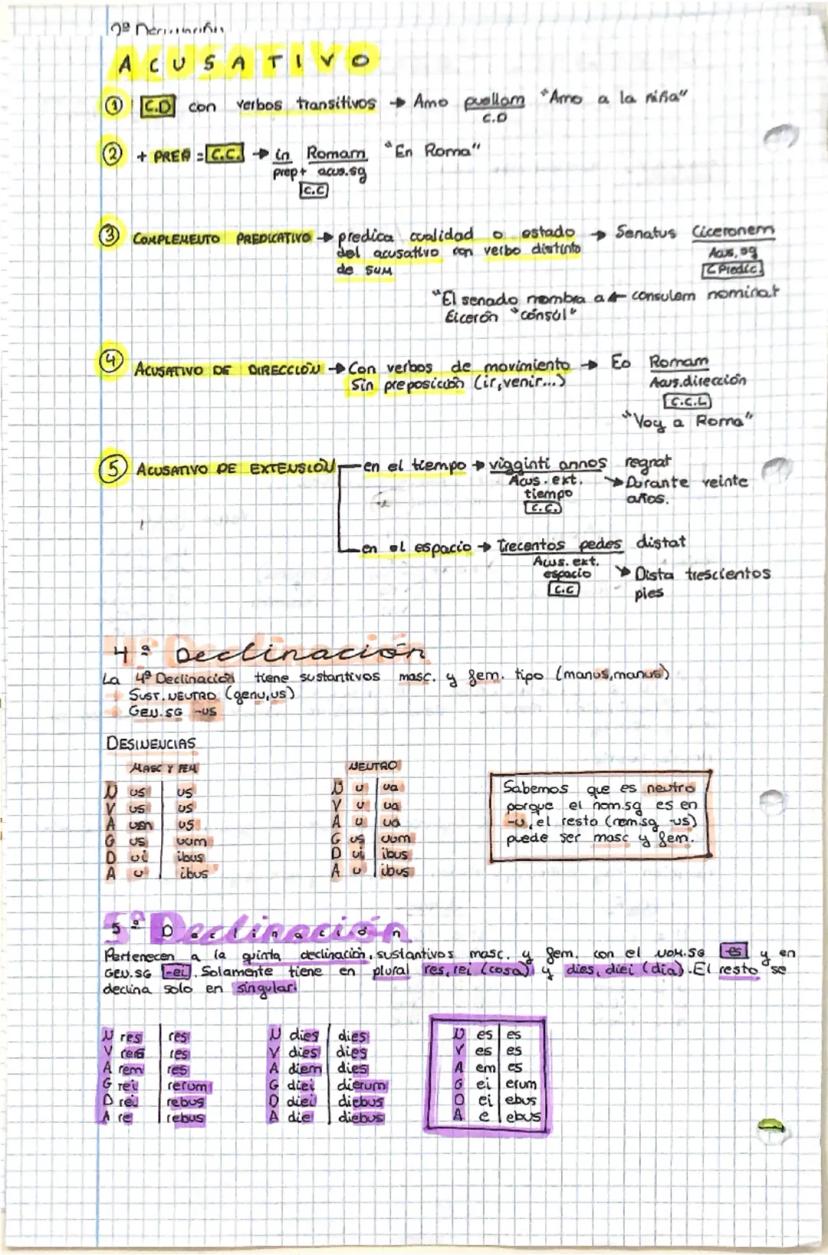 ACUSATIVO
① C.D con verbos transitivos → Amo puellam "Amo a la niña"
C.D
② + PREP = C.C. → in Romam "En Roma"
prep + acus.sg
C.C
③ COMPLEMENTO PREDICATIVO → predica cualidad o estado → Senatus Ciceronem
del acusativo con verbo distinto Acus, sg
de SUM C Predic.
"El senado nombra a consulem nominat
Cicerón "cónsul"
④ ACUSATIVO DE DIRECCIÓN → Con verbos de movimiento → Eo Romam
Sin preposición (ir, venir...) Acus.dirección
C.C.L
"Voy a Roma"
⑤ ACUSATIVO DE EXTENSIÓN en el tiempo → vigginti annos regnat
Acus. ext. → Durante veinte
tiempo años.
C.C.
en el espacio → Trecentos pedes distat
Acus. ext.
espacio → Dista trescientos
C.C pies
4ª Declinación
La 4ª Declinación tiene sustantivos masc. y fem. tipo (manus, manus)
→ SUST. NEUTRO (genu, us)
→ GEN. SG -us
DESINENCIAS
MASC Y FEM NEUTRO
N us us N u ua
V us us V u ua
A um us A u ua
G us uum G us uum
D ui ibus D ui ibus
A u ibus A u ibus
Sabemos que es neutro
porque el nom.sg es en
-u, el resto (nom.sg -us)
puede ser masc y fem.
5ª Declinación
Pertenecen a la quinta declinación, sustantivos masc. y fem. con el NOM.SG -es y en
GEN.SG -ei. Solamente tiene en plural res, rei (cosa) y dies, diei (día). El resto se
declina solo en singular.
N res res N dies dies N es es
V res res V dies dies V es es
A rem res A diem dies A em es
G rei rerum G diei dierum G ei erum
D rei rebus D diei diebus D ei ebus
A re rebus A die diebus A e ebus